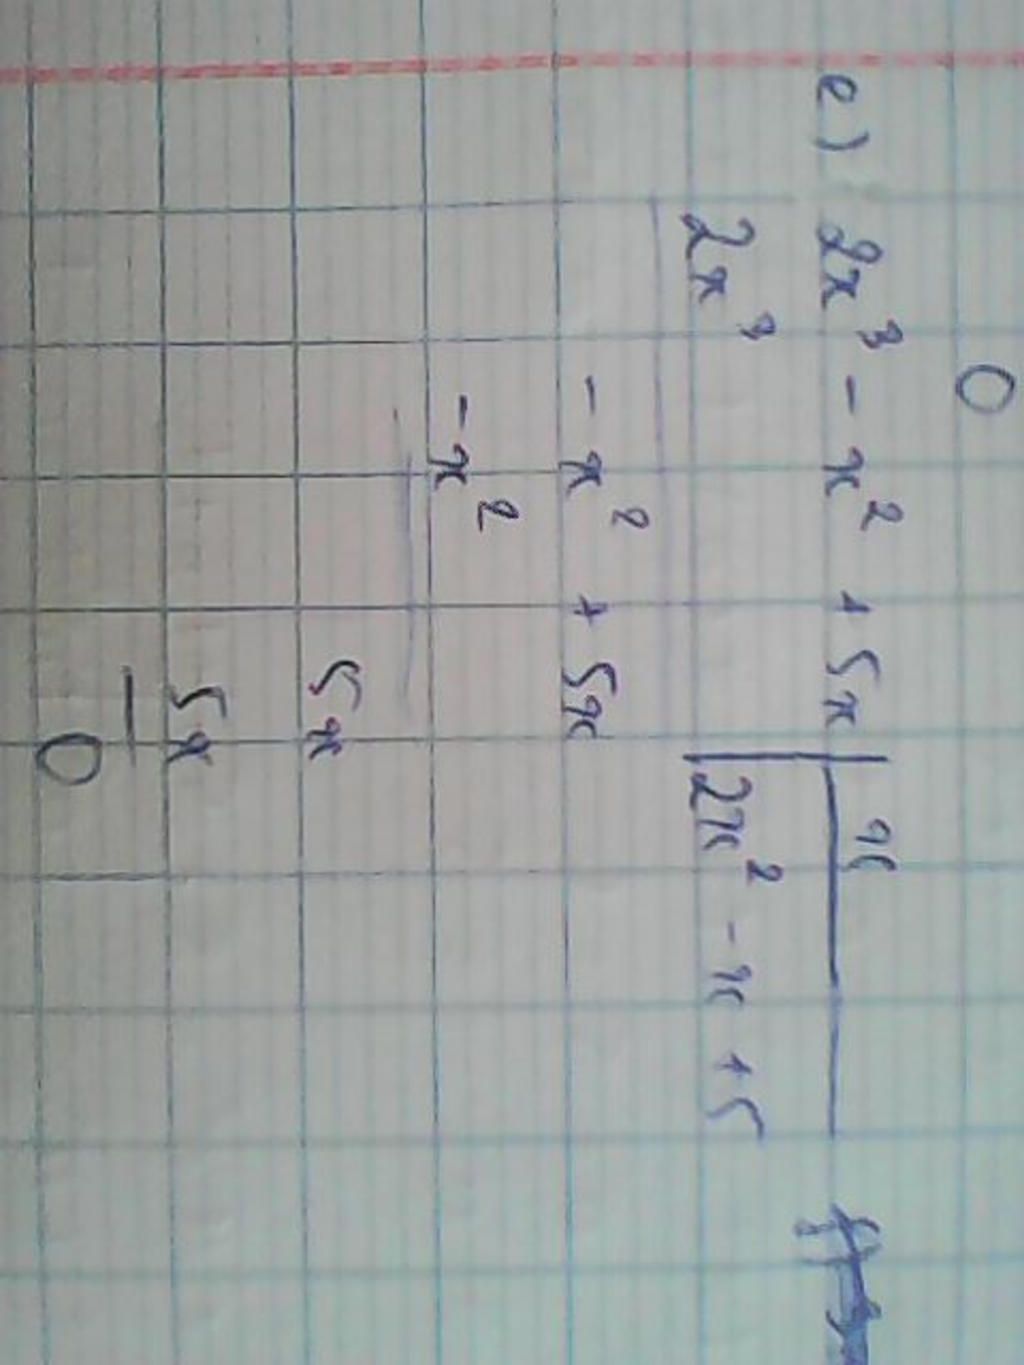 0
e) 2x³ - x² + 5x | x
2x³ 2x² - x + 5
- x² + 5x
- x²
5x
5x
0